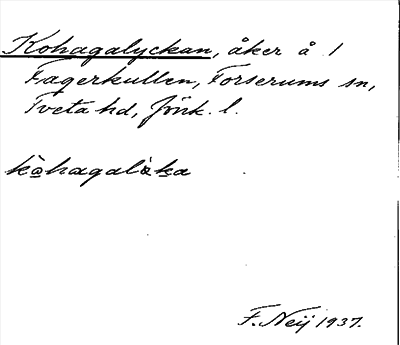 Kohagalyckan, åker å 1
Fagerkullen, Forserums sn,
Tveta hd, Jönk. l.
kohagalika
F. Neij 1937.